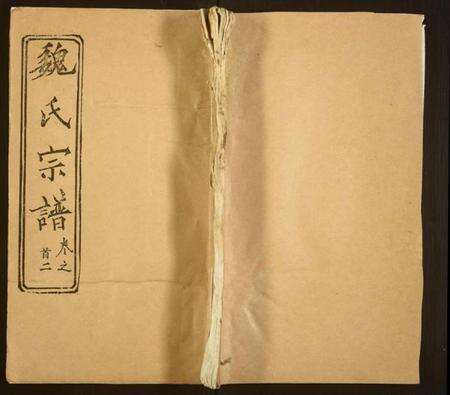 魏氏宗譜
卷之
首二